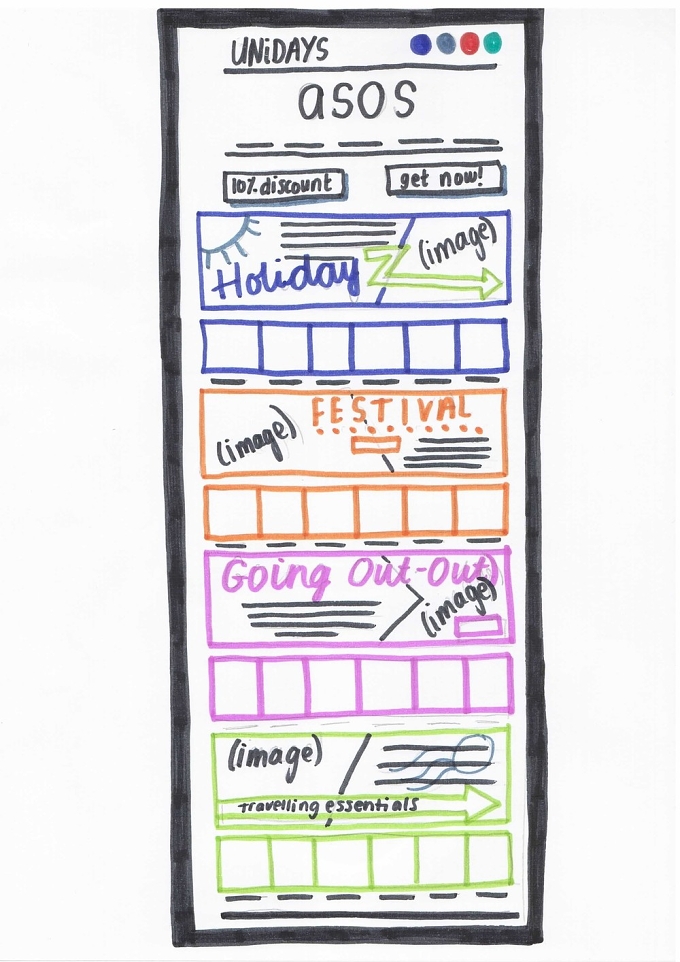 UNiDAYS
asos
10% discount
get now!
(image)
Holiday
FESTIVAL
(image)
Going Out-Out)
(image)
(image)
Travelling essentials